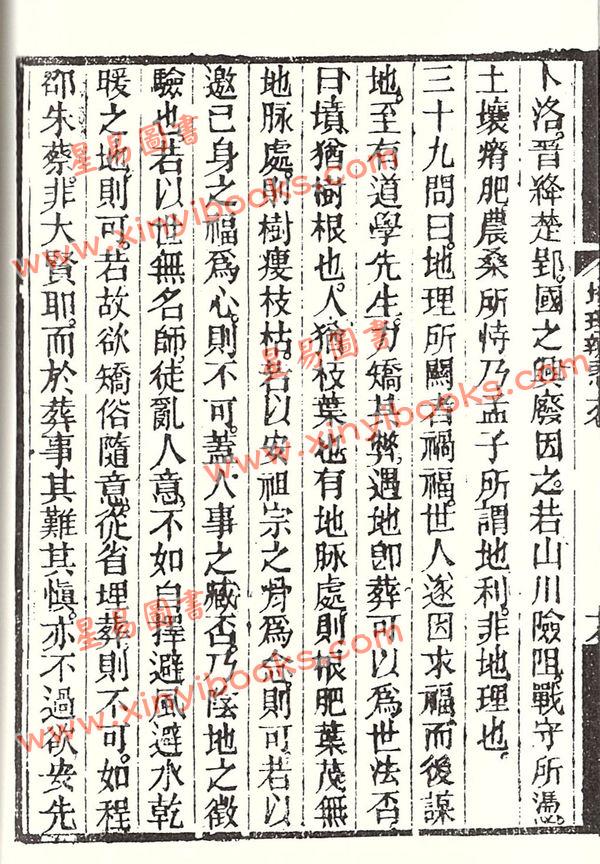 卜洛。晋絳楚郢。國之興廢因之。若山川險阻。戰守所憑。
土壤瘠肥。農桑所恃。乃孟子所謂地利。非地理也。
三十九問曰。地理所關者禍福。世人遂因求福。而後謀
地。至有道學先生。力矯其弊。遇地即葬。可以爲世法否。
曰。墳猶樹根也。人猶枝葉也。有地脉處。則根肥葉茂。無
地脉處。則樹瘦枝枯。若以安祖宗之骨爲念則可。若以
邀己身之福爲心。則不可。蓋人事之臧否。乃陰地之徵
驗也。若以世無名師。徒亂人意。不如自擇避風避水乾
暖之地則可。若故欲矯俗隨意。從省埋葬。則不可。如程
邵朱蔡。非大賢耶。而於葬事其難其慎。亦不過欲安先
地理辨惑
十九
星易圖書
www.xinyibooks.com
星易圖書
www.xinyibooks.com
星易圖書
www.xinyibooks.com